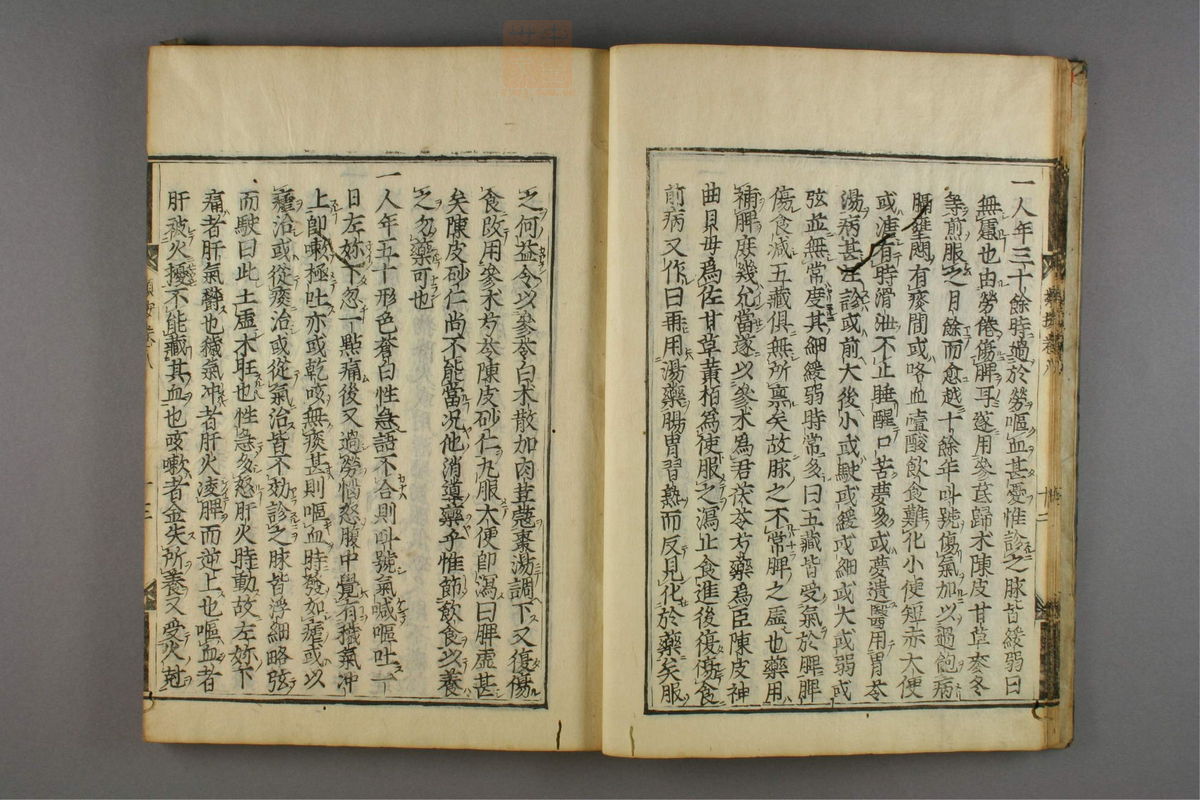 一人年三十餘時過於勞嘔血甚憂惟診之脉皆緩弱曰
無慮也由勞倦傷脾耳遂用參芪歸术陳皮甘草麥冬
等煎服之月餘而愈越十餘年叫號傷氣加以過飽病
膈壅悶有痰間或咯血噫酸飲食難化小便短赤大便
或溏有時滑泄不止睡醒口苦夢多或夢遺醫用胃苓
湯病甚汪診或前大後小或駛或緩或細或大或弱或
弦並無常度其細緩弱時常多曰五藏皆受氣於脾脾
傷食減五藏俱無所禀矣故脉之不常脾之虛也藥用
補脾庶幾允當遂以參术為君茯苓芍藥為臣陳皮神
曲貝母爲佐甘草黄栢爲使服之瀉止食進後復傷食
前病又作曰再用湯藥腸胃習熟而反見化於藥矣服
之何益令以參苓白术散加肉荳蔻棗湯調下又復傷
食改用參术芍苓陳皮砂仁丸服大便即瀉曰脾虛甚
矣陳皮砂仁尚不能當况他消導藥乎惟節飲食以養
之勿藥可也
一人年五十形色蒼白性急語不合則叫號氣喊嘔吐一
日左妳下忽一點痛後又過勞惱怒腹中覺有穢氣冲
上即嗽極吐亦或乾咳無痰甚則嘔血時發如瘧或以
瘧治或從痰治或從氣治皆不効診之脉皆浮細略弦
而駛曰此土虛木旺也性急多怒肝火時動故左妳下
痛者肝氣鬱也穢氣冲者肝火凌脾而逆上也嘔血者
肝被火擾不能藏其血也咳嗽者金失所養又受火剋